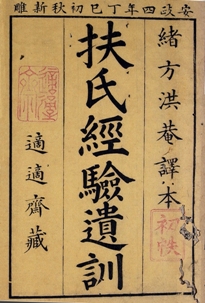 安政四年丁巳初秋新雕
緒方洪菴譯本
扶氏經驗遺訓
適適齋藏
初帙